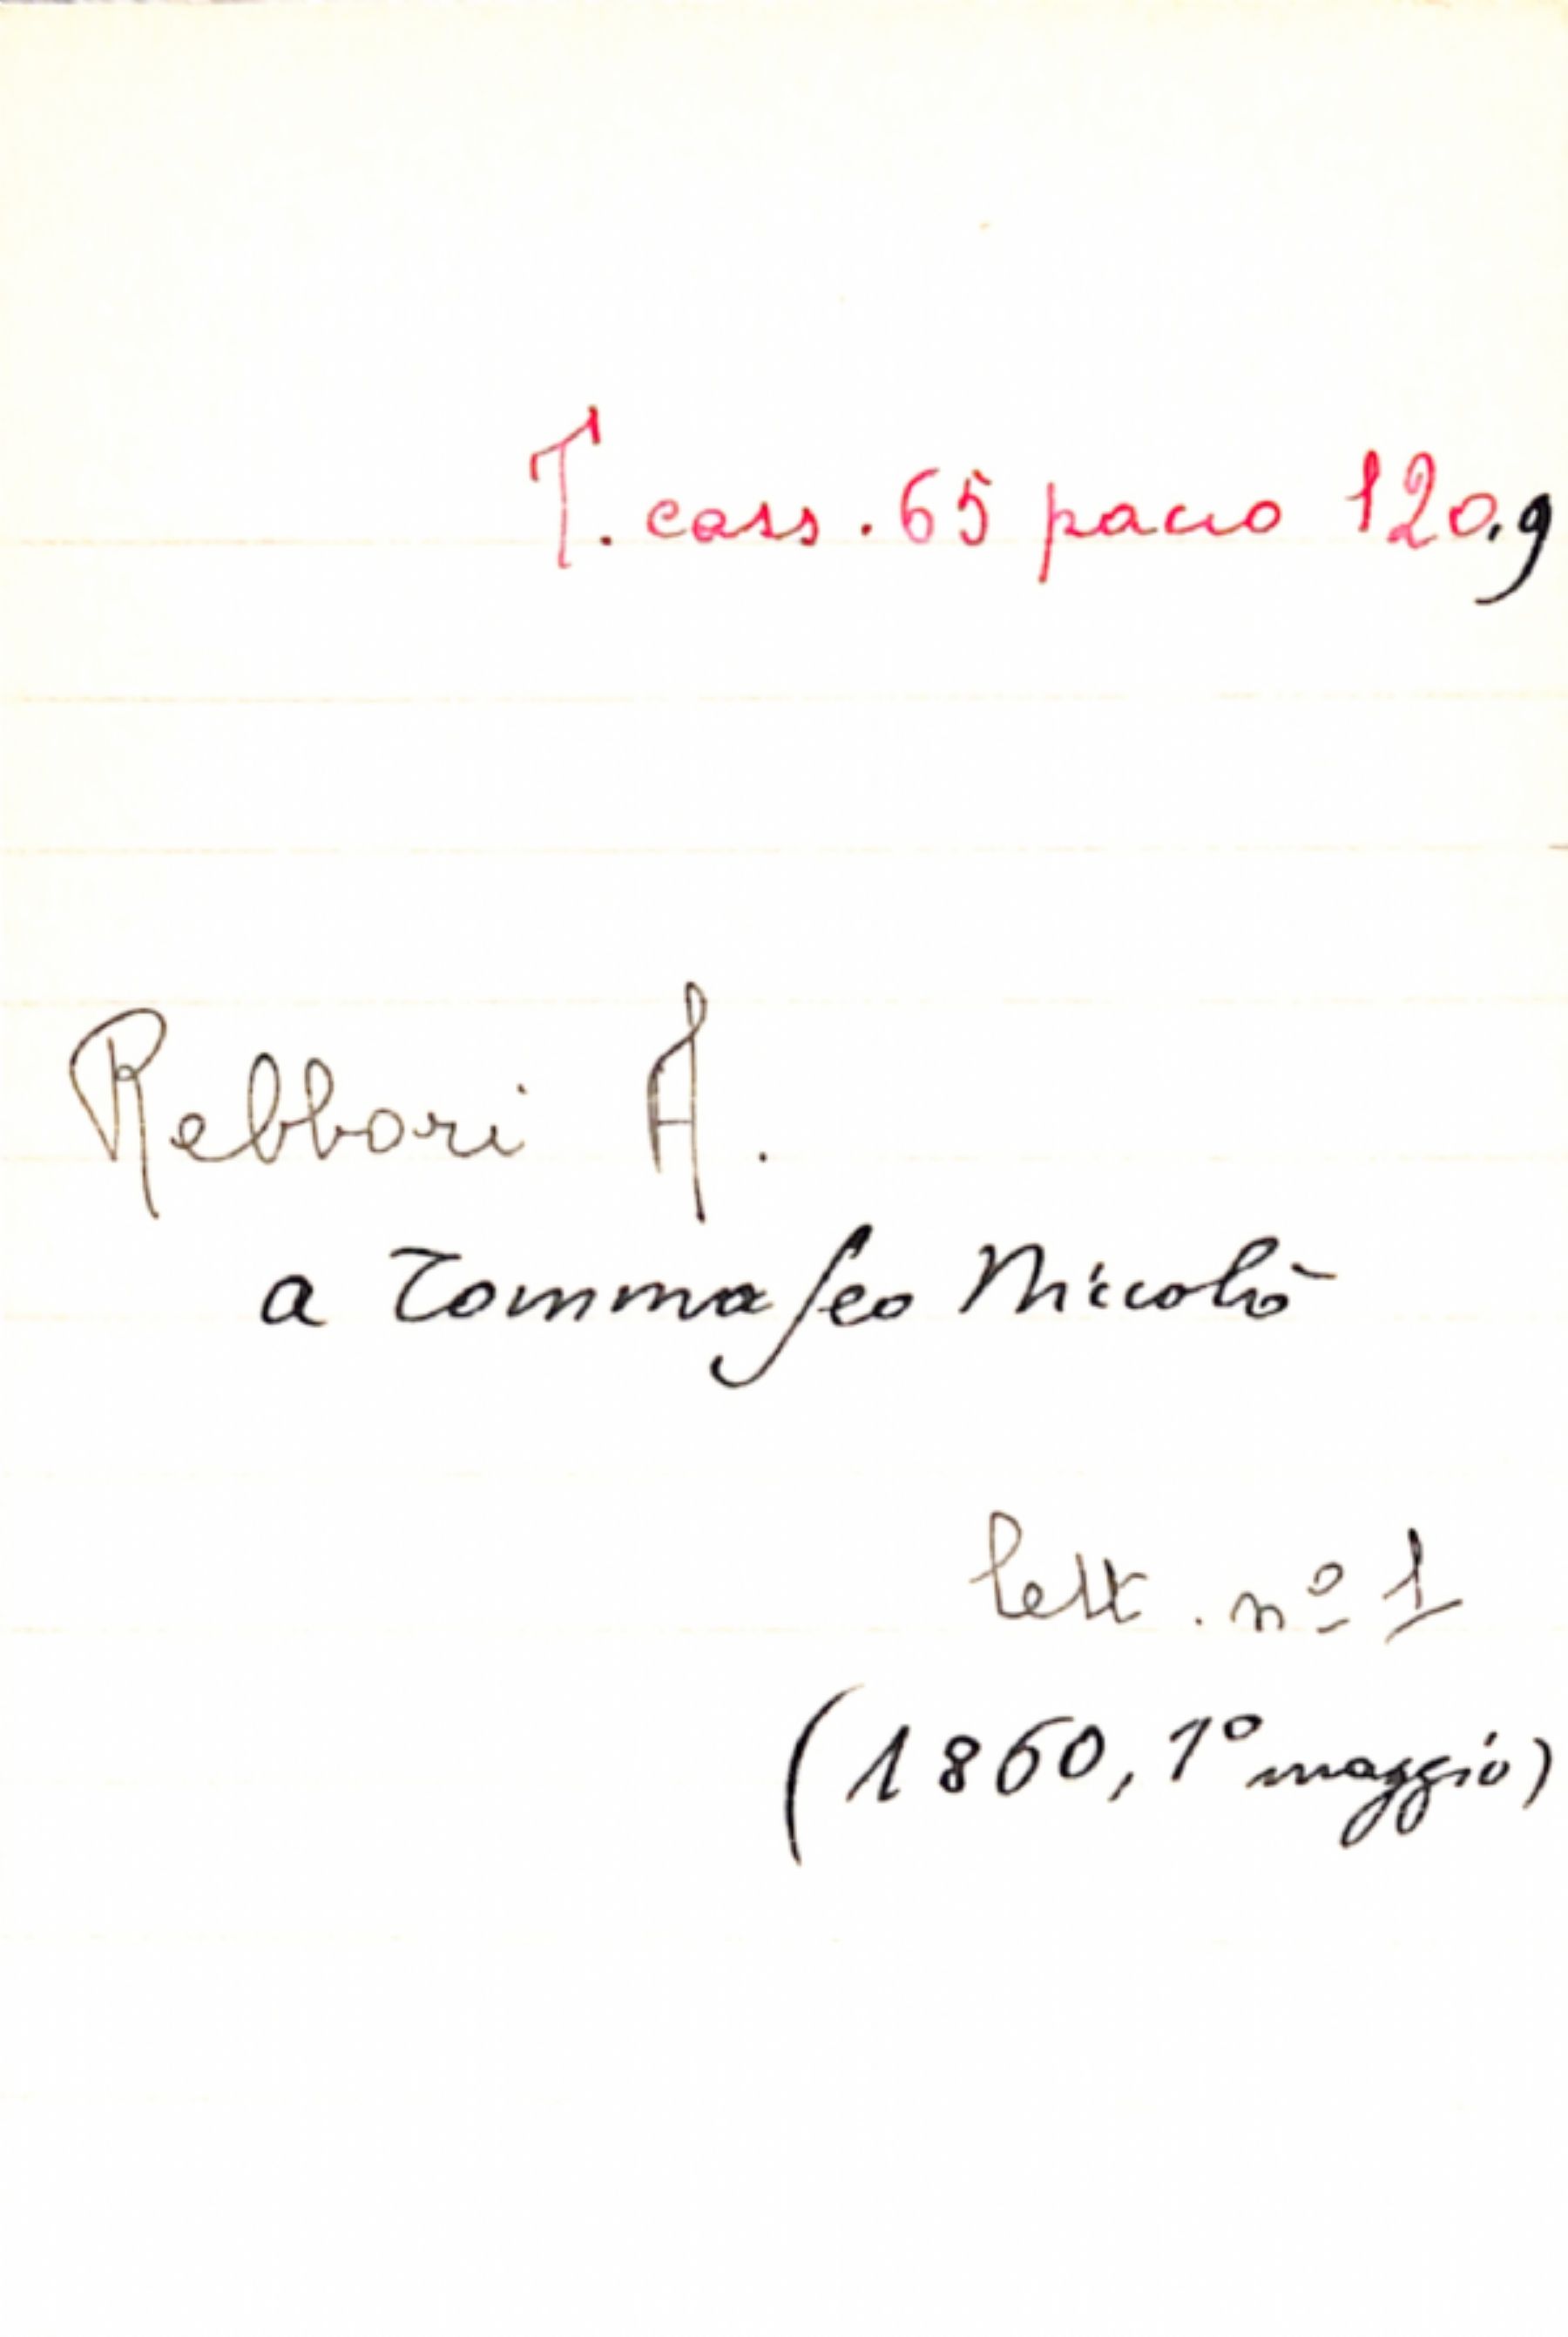 T. cass. 65 pacco 120,9
Rebbori A.
a Tommaseo Niccolò
lett. nº 1
(1860, 1º maggio)